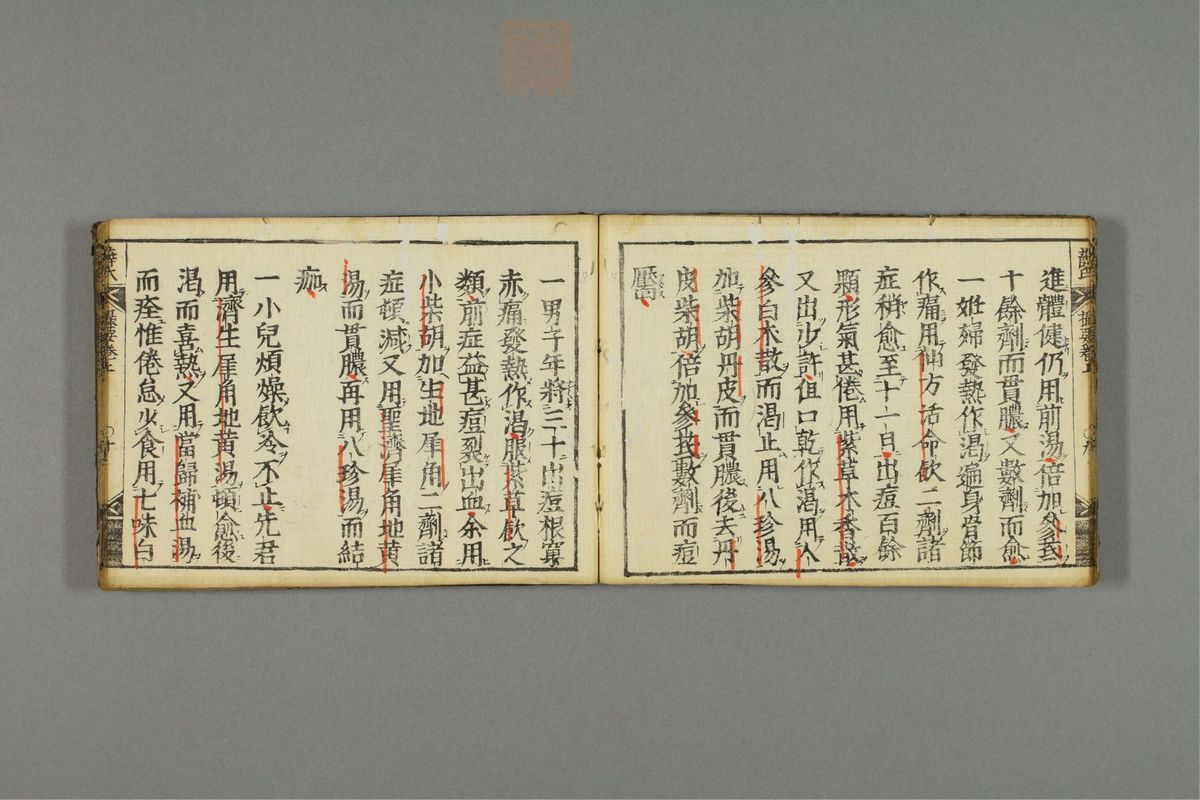 進體健仍用前湯倍加參芪
十餘劑而貫膿又數劑而愈
一姙婦發熱作渴遍身骨節
作痛用仙方活命飲二劑諸
症稍愈至十一日出痘百餘
顆形氣甚倦用紫草木香散
又出少許但口乾作渴用人
參白朮散而渴止用八珍湯
加柴胡丹皮而貫膿後去丹
皮柴胡倍加參芪數劑而痘
靨
一男子年將三十出痘根窠
赤痛發熱作渴服紫草飲之
類前症益甚痘裂出血余用
小柴胡加生地犀角二劑諸
症頓減又用聖濟犀角地黃
湯而貫膿再用八珍湯而結
痂
一小兒煩燥飲冷不止先君
用濟生犀角地黃湯頓愈後
渴而喜熱又用當歸補血湯
而痊惟倦怠少食用七味白